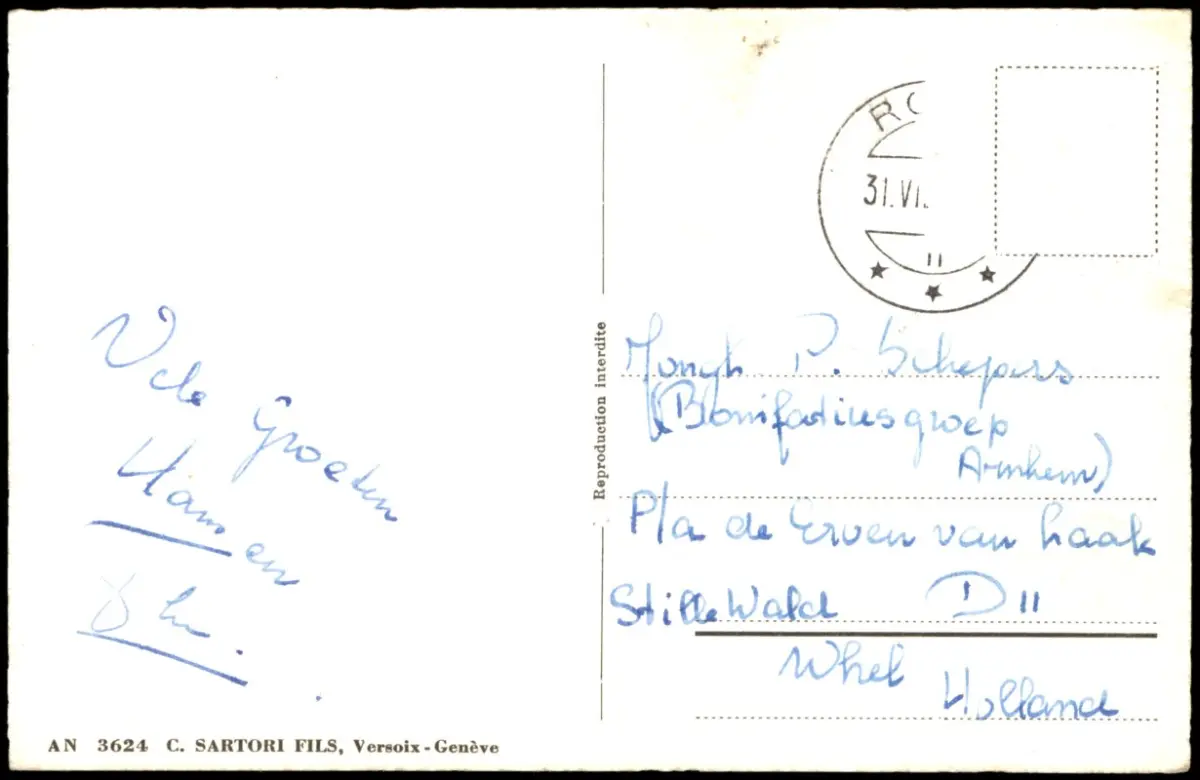 Vele
Groeten
Hans en
RO
31.VI.
II
Reproduction interdite
Jongh P. Schepers
(Bonifatiusgroep
Arnhem)
P/a de Erven van haak
Stille Wald D 11
Whel
Holland
AN 3624 C. SARTORI FILS, Versoix-Genève